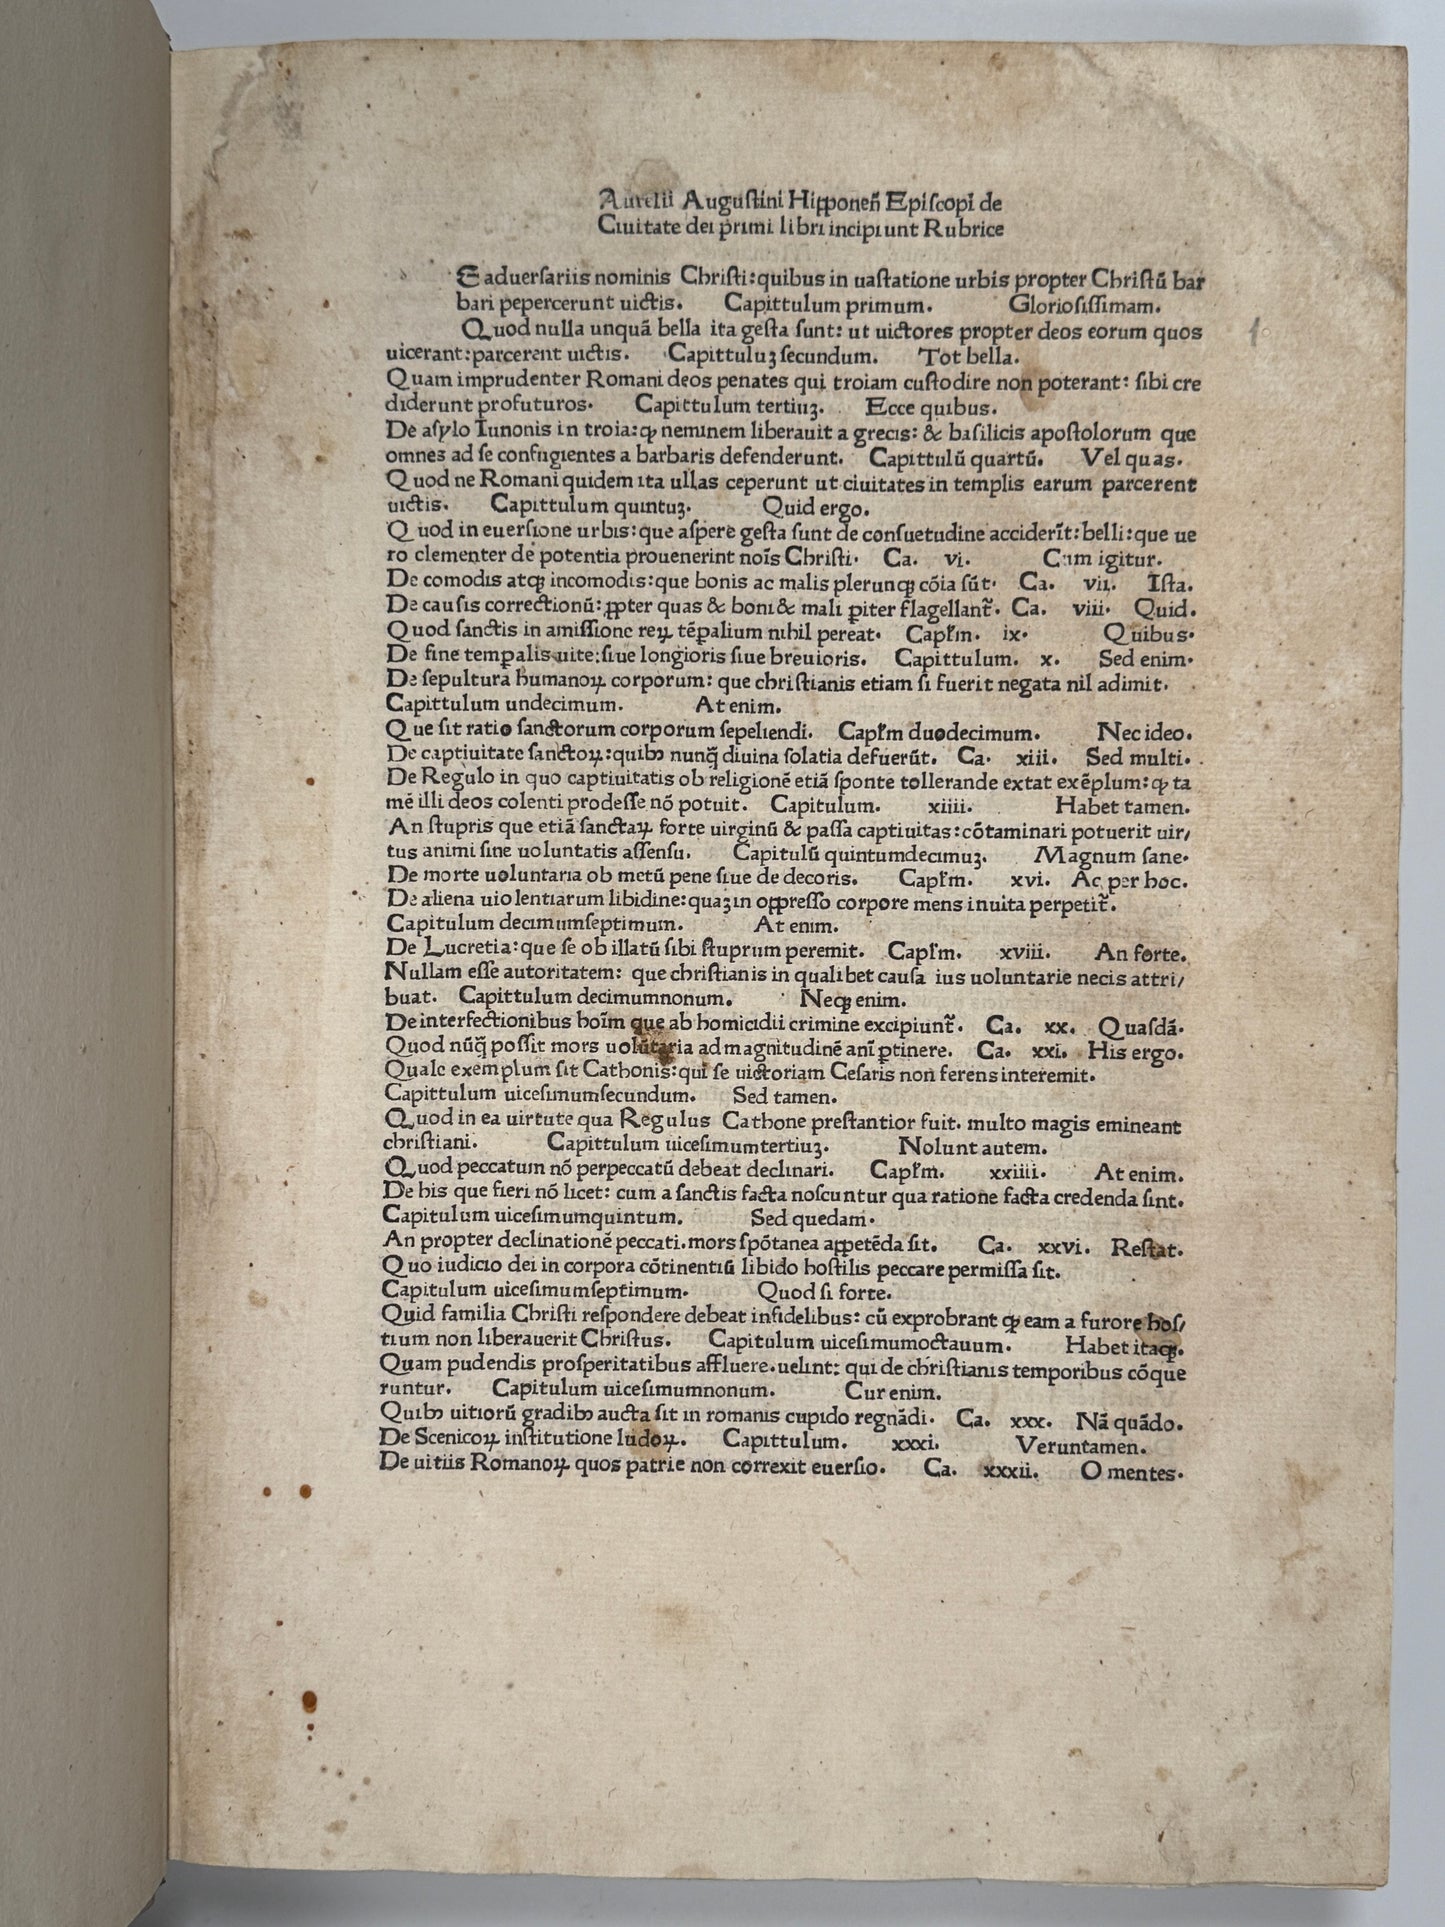 Aurelii Auguſtini Hipponeñ Epiſcopi de
Ciuitate dei primi libri incipiunt Rubrice
E aduerſariis nominis Chriſti: quibus in uaſtatione urbis propter Chriſtũ bar
bari pepercerunt uictis. Capittulum primum. Glorioſiſſimam.
Quod nulla unquã bella ita geſta ſunt: ut uictores propter deos eorum quos
uicerant: parcerent uictis. Capittuluꝫ ſecundum. Tot bella.
Quam imprudenter Romani deos penates qui troiam cuſtodire non poterant: ſibi cre
diderunt profuturos. Capittulum tertiuꝫ. Ecce quibus.
De aſylo Iunonis in troia: ꝙ neminem liberauit a grecis: & baſilicis apoſtolorum que
omnes ad ſe confugientes a barbaris defenderunt. Capittulũ quartũ. Vel quas.
Quod ne Romani quidem ita ullas ceperunt ut ciuitates in templis earum parcerent
uictis. Capittulum quintuꝫ. Quid ergo.
Quod in euerſione urbis: que aſpere geſta ſunt de conſuetudine acciderĩt: belli: que ue
ro clementer de potentia prouenerint noĩs Chriſti. Ca. vi. Cum igitur.
De comodis atqꝫ incomodis: que bonis ac malis plerunqꝫ cõia ſũt. Ca. vii. Iſta.
De cauſis correctionũ: ꝓpter quas & boni & mali ꝑiter flagellant᷑. Ca. viii. Quid.
Quod ſanctis in amiſſione reꝝ tẽꝑalium nihil pereat. Capl̃m. ix. Quibus.
De fine temꝑalis uite: ſiue longioris ſiue breuioris. Capittulum. x. Sed enim.
De ſepultura humanoꝝ corporum: que chriſtianis etiam ſi fuerit negata nil adimit.
Capittulum undecimum. At enim.
Que ſit ratio ſanctorum corporum ſepeliendi. Capl̃m duodecimum. Nec ideo.
De captiuitate ſanctoꝝ: quibꝰ nunꝗ̃ diuina ſolatia defuerũt. Ca. xiii. Sed multi.
De Regulo in quo captiuitatis ob religionẽ etiã ſponte tollerande extat exẽplum: ꝙ ta
mẽ illi deos colenti prodeſſe nõ potuit. Capitulum. xiiii. Habet tamen.
An ſtupris que etiã ſanctaꝝ forte uirginũ & paſſa captiuitas: cõtaminari potuerit uir/
tus animi ſine uoluntatis aſſenſu. Capitulũ quintumdecimuꝫ. Magnum ſane.
De morte uoluntaria ob metũ pene ſiue de decoris. Capl̃m. xvi. Ac per hoc.
De aliena uiolentiarum libidine: quaꝫ in oppreſſo corpore mens inuita perpetit᷑.
Capitulum decimumſeptimum. At enim.
De Lucretia: que ſe ob illatũ ſibi ſtuprum peremit. Capl̃m. xviii. An forte.
Nullam eſſe autoritatem: que chriſtianis in qualibet cauſa ius uoluntarie necis attri/
buat. Capittulum decimumnonum. Neqꝫ enim.
De interfectionibus hoĩm que ab homicidii crimine excipiunt᷑. Ca. xx. Quaſdã.
Quod nũꝗ̃ poſſit mors uolũtaria ad magnitudinẽ anĩ ꝑtinere. Ca. xxi. His ergo.
Quale exemplum ſit Cathonis: qui ſe uictoriam Ceſaris non ferens interemit.
Capittulum uiceſimumſecundum. Sed tamen.
Quod in ea uirtute qua Regulus Cathone preſtantior fuit. multo magis emineant
chriſtiani. Capittulum uiceſimumtertiuꝫ. Nolunt autem.
Quod peccatum nõ perpeccatũ debeat declinari. Capl̃m. xxiiii. At enim.
De his que fieri nõ licet: cum a ſanctis facta noſcuntur qua ratione facta credenda ſint.
Capitulum uiceſimumquintum. Sed quedam.
An propter declinationẽ peccati. mors ſpõtanea appetẽda ſit. Ca. xxvi. Reſtat.
Quo iudicio dei in corpora cõtinentiũ libido hoſtilis peccare permiſſa ſit.
Capitulum uiceſimumſeptimum. Quod ſi forte.
Quid familia Chriſti reſpondere debeat infidelibus: cũ exprobrant ꝙ eam a furore hoſ/
tium non liberauerit Chriſtus. Capitulum uiceſimumoctauum. Habet itaqꝫ.
Quam pudendis proſperitatibus affluere. uelint: qui de chriſtianis temporibus cõque
runtur. Capitulum uiceſimumnonum. Cur enim.
Quibꝰ uitiorũ gradibꝰ aucta ſit in romanis cupido regnãdi. Ca. xxx. Nã quãdo.
De Scenicoꝝ inſtitutione ludoꝝ. Capittulum. xxxi. Veruntamen.
De uitiis Romanoꝝ quos patrie non correxit euerſio. Ca. xxxii. O mentes.